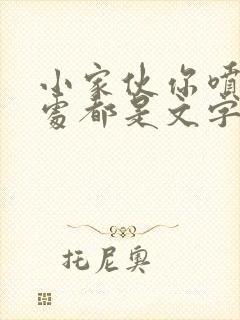 小家伙你喷
处都是文字
托尼奥